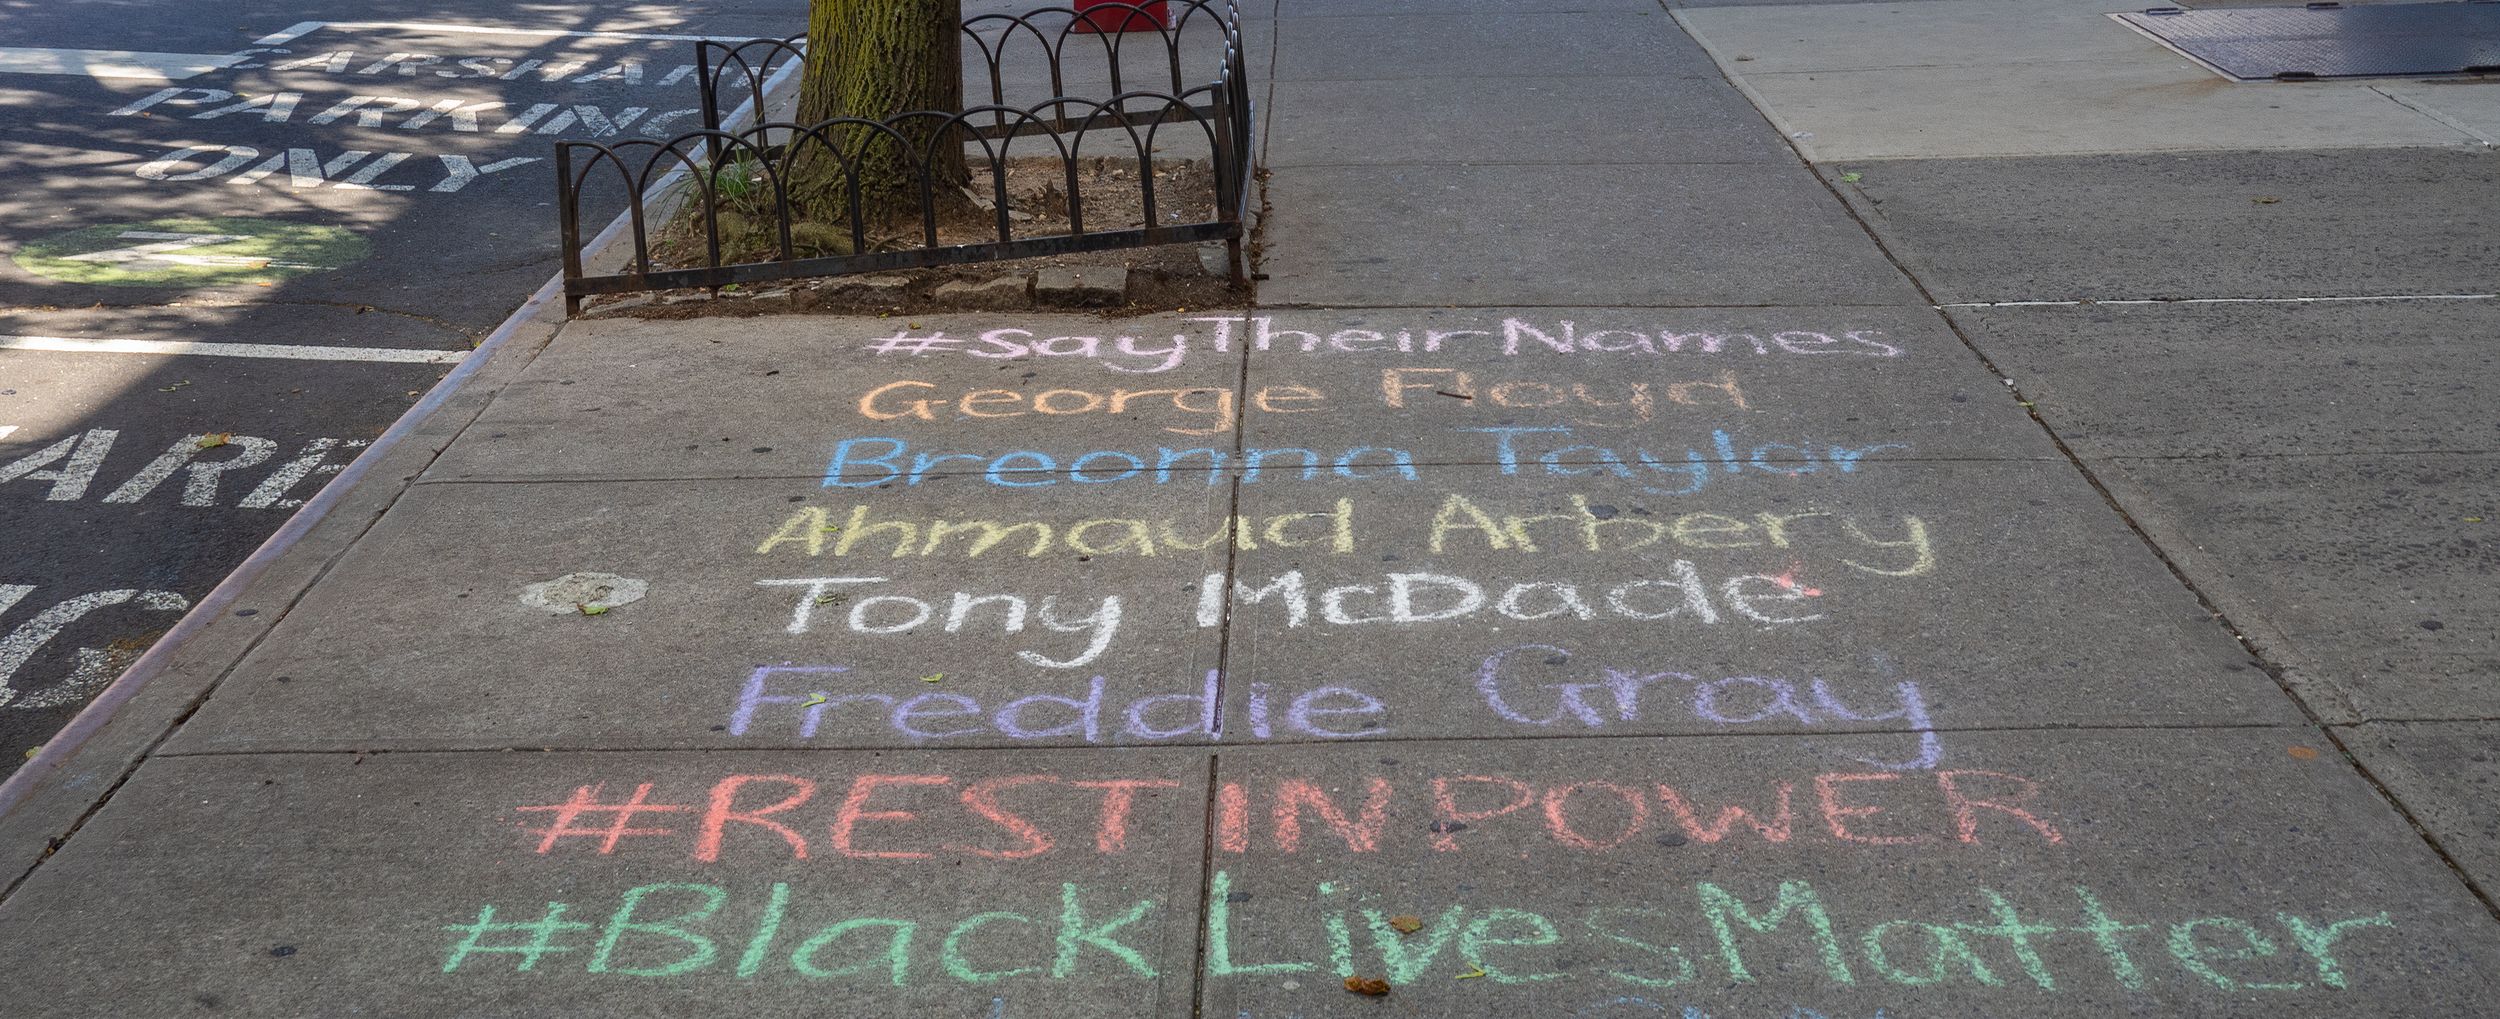 CARSHARE
PARKING
ONLY
#SayTheirNames
George Floyd
Breonna Taylor
Ahmaud Arbery
Tony McDade
Freddie Gray
#REST IN POWER
#BlackLivesMatter